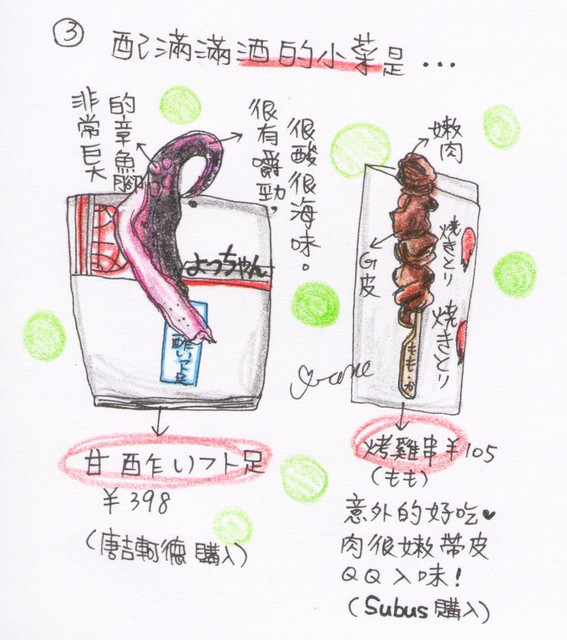 ③
配滿滿酒的小菜是...
非常巨大
的章魚腳
很有嚼勁,
很酸很海味。
よっちゃん
酢いフト足
嫩肉
G皮
焼きとり
焼きとり
もも・か
甘酢いフト足
¥398
(唐吉軻德購入)
烤雞串¥105
(もも)
意外的好吃♥
肉很嫩帶皮
QQ入味!
(Subus購入)